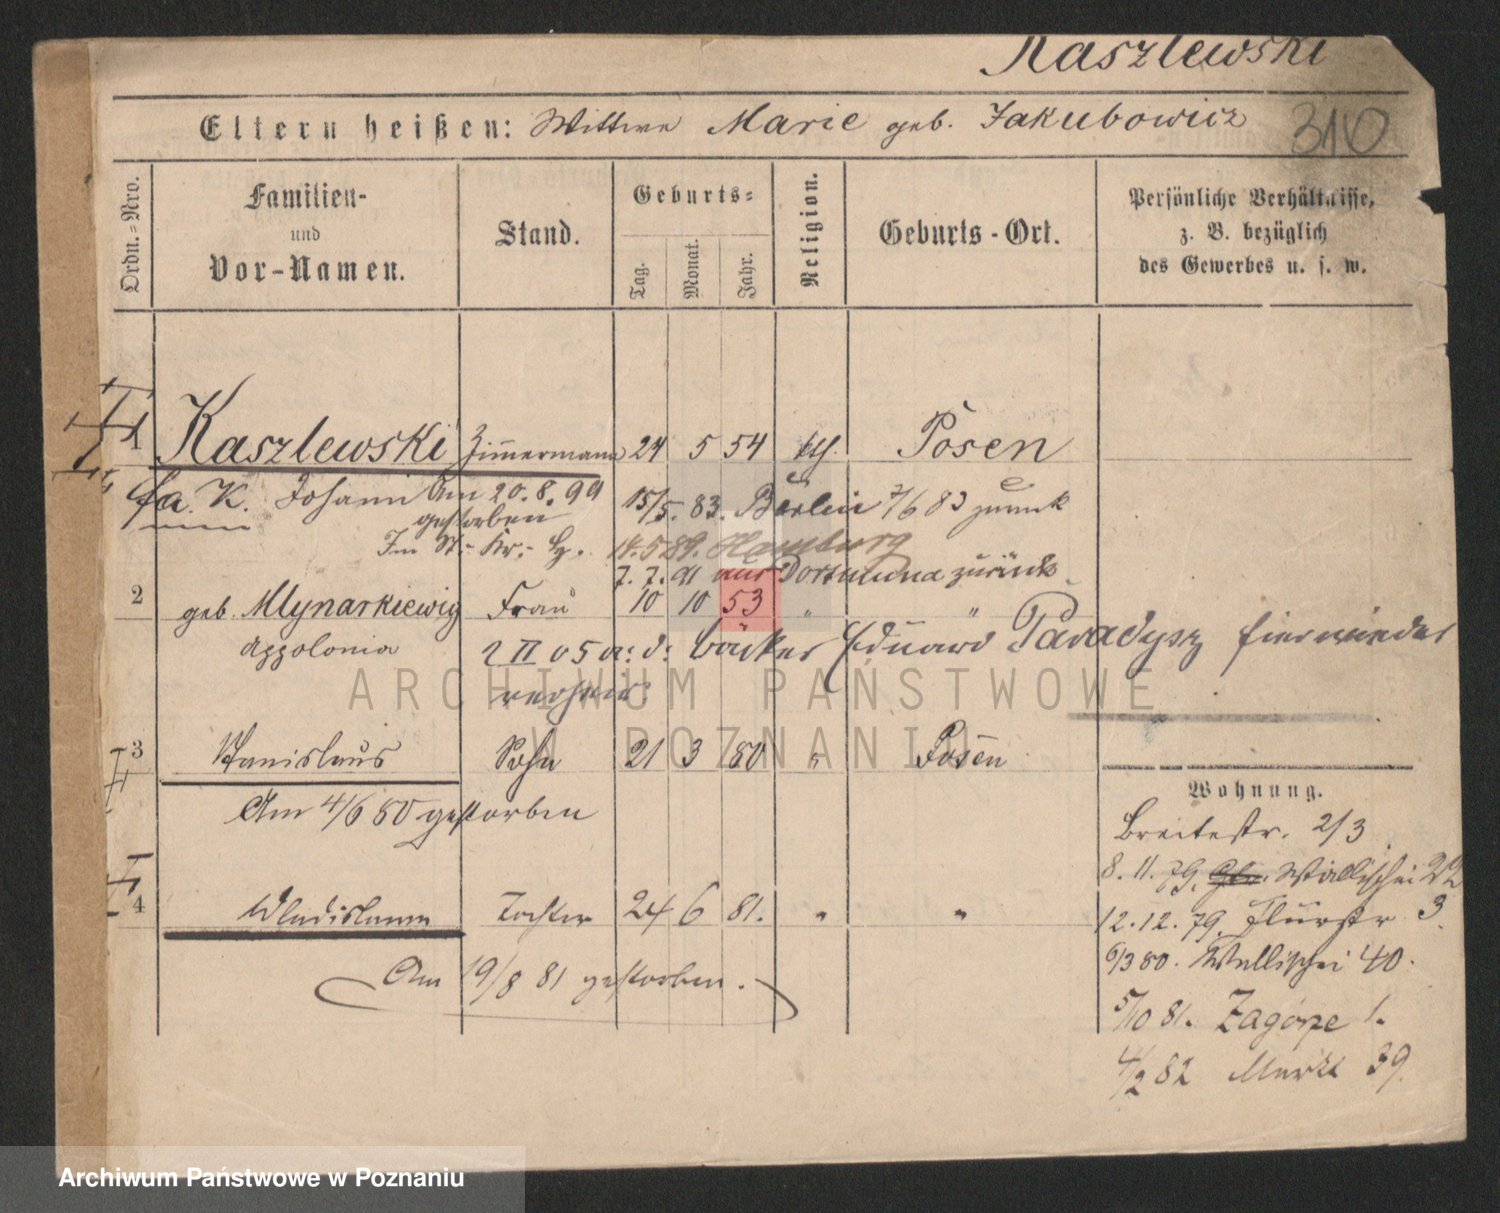 Kaszlewski
Eltern heißen: Wittwe Marie geb. Jakubowicz 310
Ordn.-Nro.
Familien-
und
Vor-Namen.
Stand.
Geburts-
Tag.
Monat.
Jahr.
Religion.
Geburts-Ort.
Persönliche Verhältnisse,
z. B. bezüglich
des Gewerbes u. s. w.
1 Kaszlewski Zimmermann 24 5 54 kth. Posen
K. Johann Am 20.8.99 15/5. 83. Berlin 7/6 83 zurück
gestorben
Im St.-Kr.- 14.5 89. Hamburg
7. 7. 91 aus Dortmund zurück
2 geb. Mlynarkiewicz Frau 10 10 53 " "
Appolonia 2 II 05 a: d: Bäcker Eduard Paradysz hier wieder
verheir:
3 Stanislaus Sohn 21 3 80 " Posen
Am 4/6 80 gestorben
4 Wladislawa Tochter 24 6 81. " "
Am 19/8 81 gestorben.
Wohnung.
Breitestr. 2/3
8. 11. 79. Wallischei 22
12. 12. 79. Flurstr 3.
6/3 80. Wallischei 40.
5/10 81. Zagorze 1.
4/2 82 Markt 39
ARCHIWUM PAŃSTWOWE
W POZNANIU
Archiwum Państwowe w Poznaniu